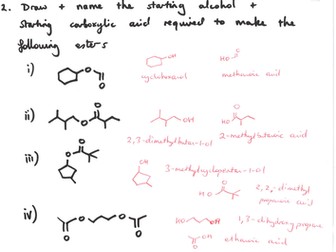 2. Draw + name the starting alcohol +
starting carboxylic acid required to make the
following esters
i)
OH
HO
O
cyclohexanol
methanoic acid
ii)
OH
HO
O
2,3-dimethylbutan-1-ol
2-methylbutanoic acid
iii)
OH
3-methylcyclopentan-1-ol
HO
O
2,2-dimethyl
propanoic acid
iv)
HO
OH
1,3-dihydroxypropane
O
OH
ethanoic acid